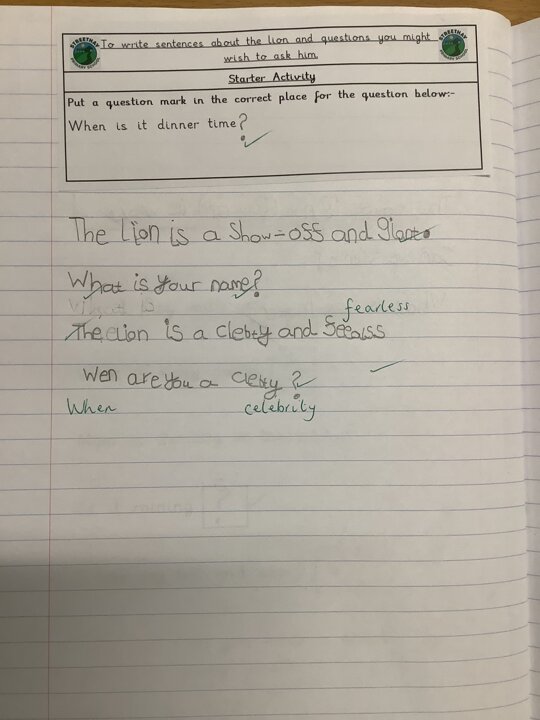 To write sentences about the lion and questions you might
wish to ask him.
Starter Activity
Put a question mark in the correct place for the question below:-
When is it dinner time?
The Lion is a Show-off and giant.
What is your name?
fearless
The Lion is a clebty and
Wen are you a clebty?
When celebrity
STREETHAY
PRIMARY SCHOOL
STREETHAY
PRIMARY SCHOOL